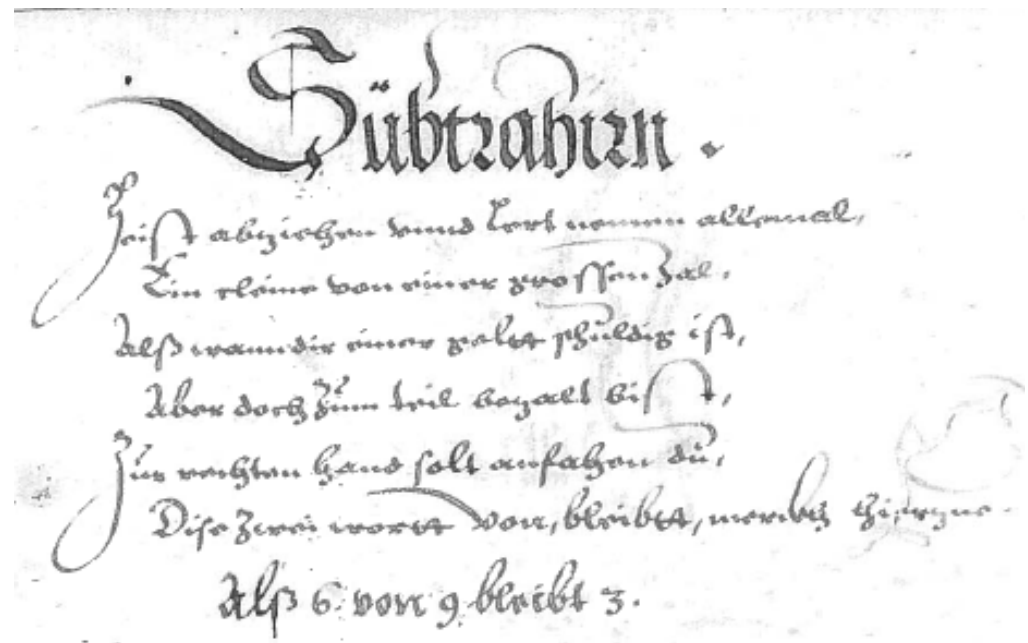 Sübtrahirn.
Heist abziehen vnnd lert nemen allemal,
Ein cleine von einer grossen Zal,
Alß wann dir einer geltt schůldig ist,
Aber doch Zům teil bezalt bist,
Zur rechten hand solt anfahen dů,
Dise Zwei wortt von, bleibtt, merckh hierzue.
Alß 6 von 9 bleibt 3.